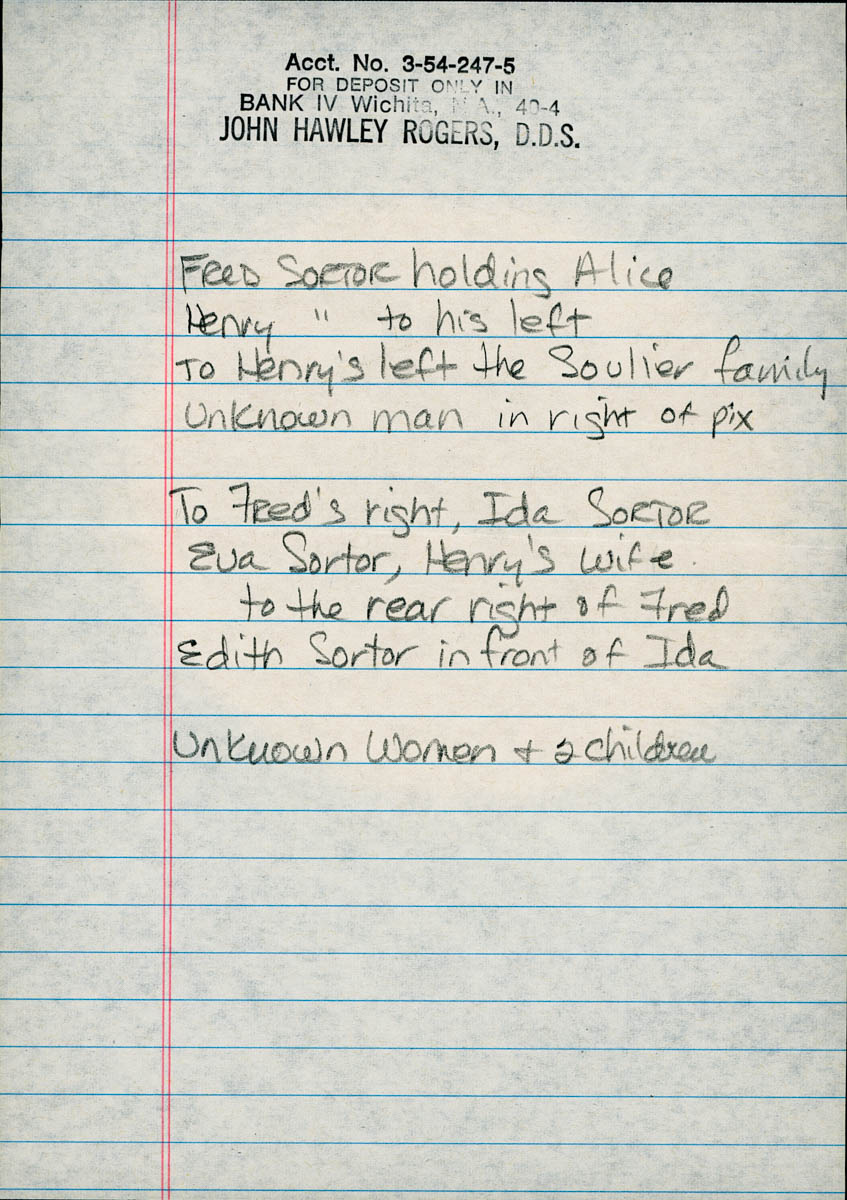 Acct. No. 3-54-247-5
FOR DEPOSIT ONLY IN
BANK IV Wichita, N.A., 40-4
JOHN HAWLEY ROGERS, D.D.S.
FRED SORTOR holding Alice
Henry " to his left
To Henry's left the Soulier family
Unknown man in right of pix
To Fred's right, Ida SORTOR
Eva Sortor, Henry's wife
to the rear right of Fred
Edith Sortor in front of Ida
Unknown Women + 2 children